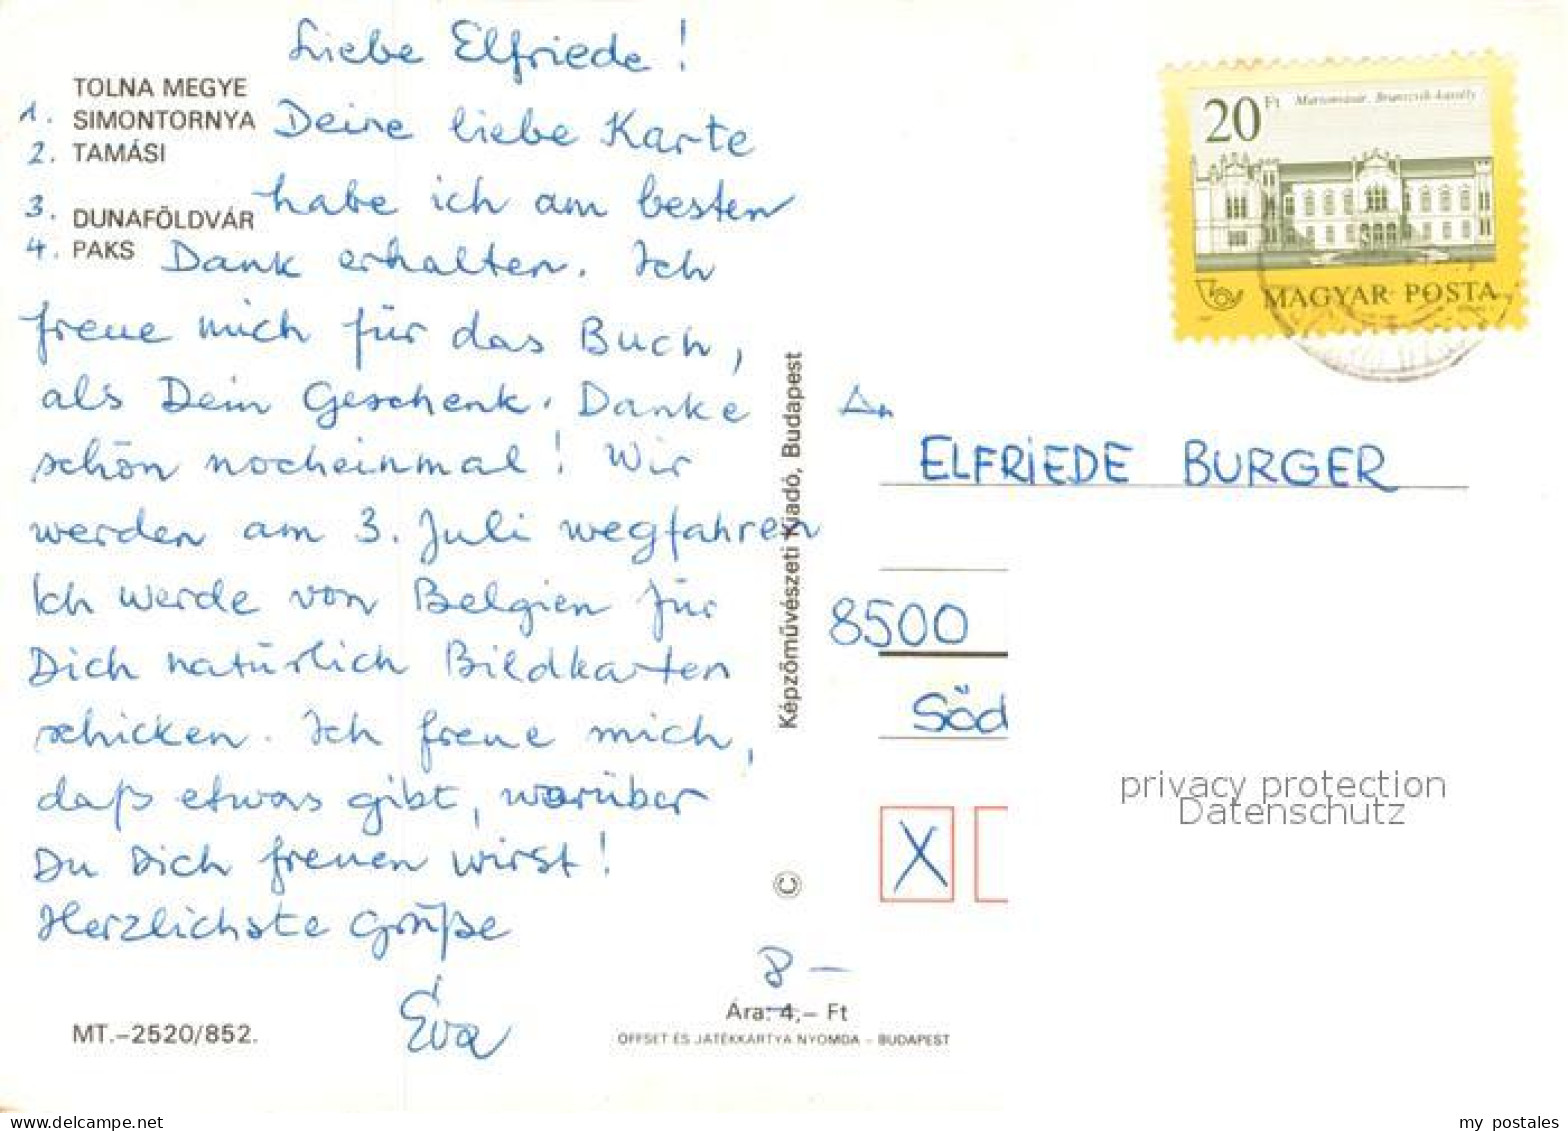 Liebe Elfriede!
TOLNA MEGYE
1. SIMONTORNYA
2. TAMÁSI
3. DUNAFÖLDVÁR
4. PAKS
Deine liebe Karte
habe ich am besten
Dank erhalten. Ich
freue mich für das Buch,
als Dein Geschenk. Danke
schön nocheinmal! Wir
werden am 3. Juli wegfahren
Ich werde von Belgien für
Dich natürlich Bildkarten
schicken. Ich freue mich,
daß etwas gibt, worüber
Du Dich freuen wirst!
Herzlichste Grüße
Éva
MT.–2520/852.
Képzőművészeti Kiadó, Budapest
©
8 –
Ára: 4,– Ft
OFFSET ÉS JÁTÉKKÁRTYA NYOMDA – BUDAPEST
20 Ft Martonvásár, Brunszvik-kastély
MAGYAR POSTA
An
ELFRIEDE BURGER
8500
Söd
X
privacy protection
Datenschutz
my postales